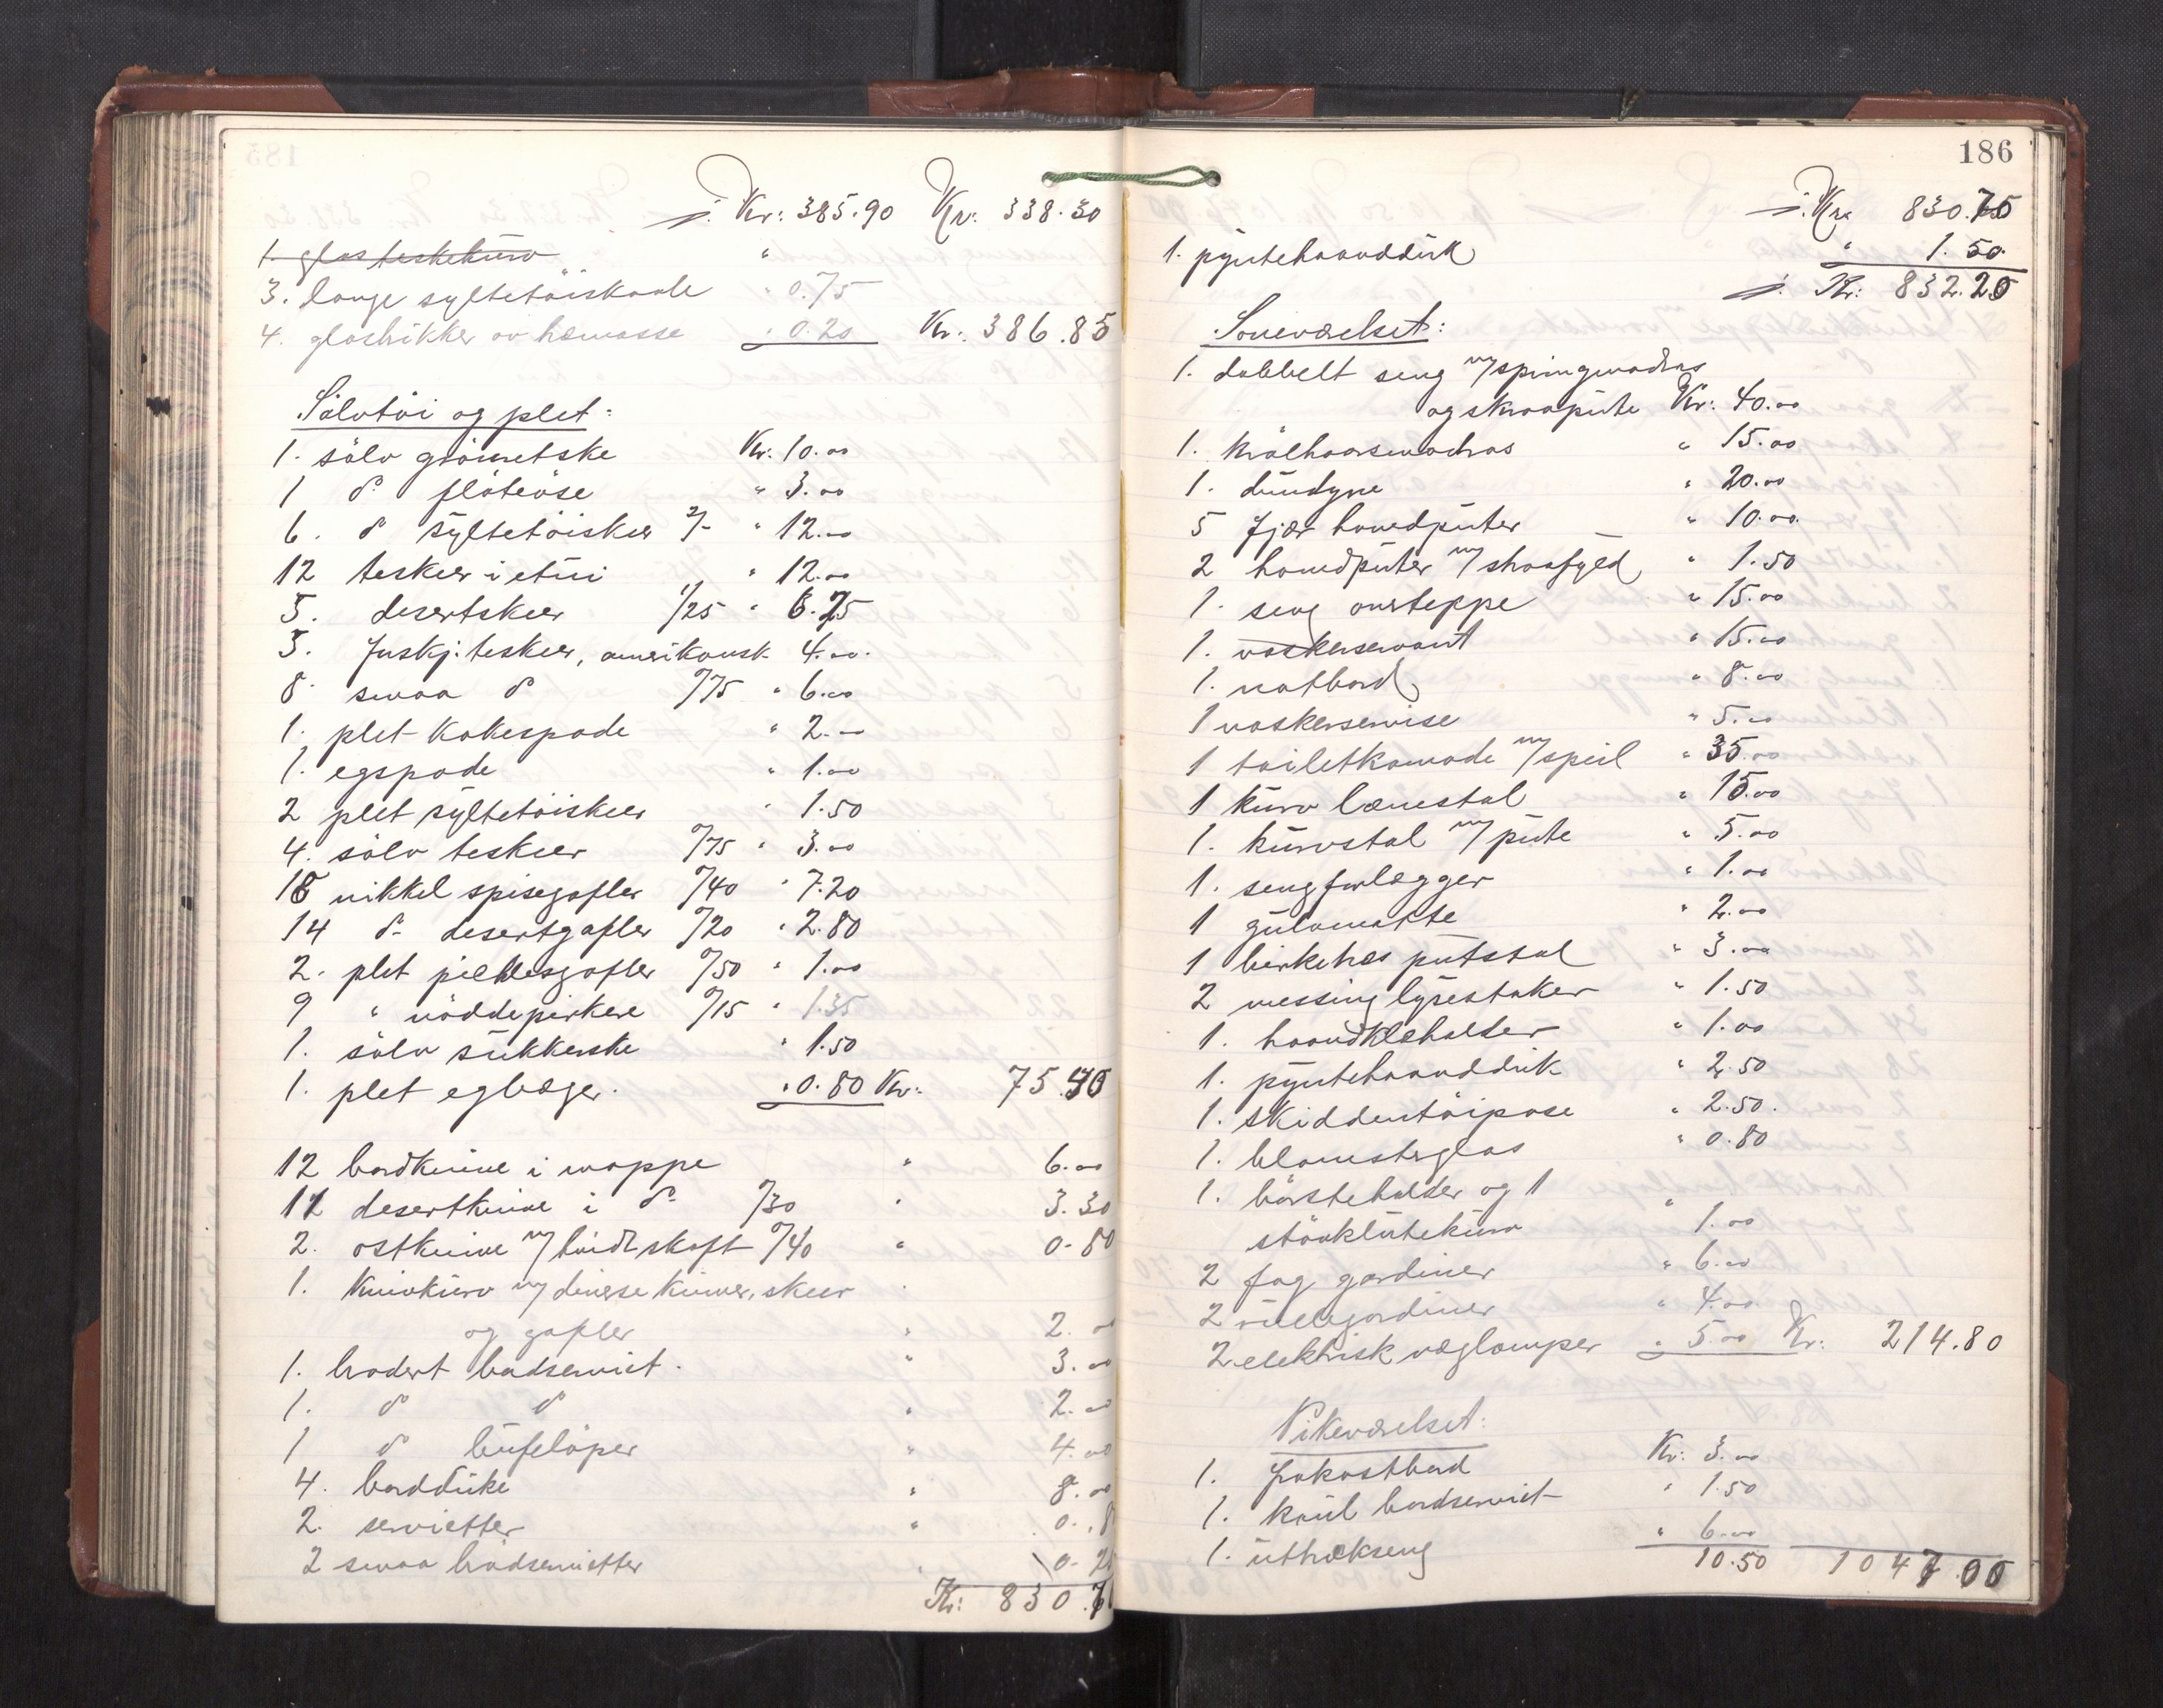 Kr: 385.90 Kr: 338.30
1. glas teskekurv "
3. lange syltetöiskaale " 0.75
4. glasbrikker av træmasse " 0.20 Kr: 386.85
Sölvtöi og plet:
1. sölv grönnetske Kr. 10.00
1 do flöteöse " 3.00
6. do syltetöiskeer 2/- " 12.00
12 teskeer i etui " 12.00
5. desertskeer 1/25 " 6.25
5. Juskj: teskeer, amerikansk 4.00
8. smaa do 0/75 " 6.00
1. plet kakespade " 2.00
1. egspade " 1.00
2 plet syltetöiskeer " 1.50
4. sölv teskeer 0/75 " 3.00
18 nikkel spisegafler 0/40 " 7.20
14 do desertgafler 0/20 " 2.80
2. plet picklesgafler 0/50 " 1.00
9 " nöddepirkere 0/15 " 1.35
1. sölv sukkerske " 1.50
1. plet egbæger. " 0.80 Kr: 75.40
12 bordknive i mappe " 6.00
11 desertknive i do 0/30 " 3.30
2. ostknive m/ hvidt skaft 0/40 " 0.80
1. knivkurv m/ diverse kniver, skeer
og gafler " 2.00
1. brodert bordserviet. " 3.00
1. do do " 2.00
1 do bufelöper " 4.00
4. bordduke " 8.00
2. servietter " 0.8
2 smaa brödservietter " 0.2
Kr: 830.7
186
Kr: 830.75
1. pyntehaandduk " 1.50
Kr: 832.25
Soveværelset:
1. dobbelt seng m/springmadras
og skraapute Kr: 40.00
1. krölhaarsmadras " 15.00
1. dundyne " 20.00
5 fjær hovedputer " 10.00
2 hovedputer m/ straafyld " 1.50
1. seng overteppe " 15.00
1. vaskeservant " 15.00
1. natbord " 8.00
1 vaskeservise " 5.00
1 toiletkomode m/speil " 35.00
1 kurv lænestol " 15.00
1. kurvstol m/ pute " 5.00
1. sengforlægger " 1.00
1 gulvmatte " 2.00
1 birketræs putstol " 3.00
2 messing lysestaker " 1.50
1. haandklæholder " 1.00
1. pyntehaandduk " 2.50
1. skiddentöipose " 2.50.
1. blomsterglas " 0.80
1. börsteholder og 1
stövklutekurv " 1.00
2 fag gardiner " 6.00
2 rullegardiner " 4.00
2 elektrisk væglamper " 5.00 Kr: 214.80
Pikeværelset:
1. frokostbord Kr: 3.00
1. kaul bordserviet " 1.50
1. uttrækseng " 6.00
10.50 1047.05